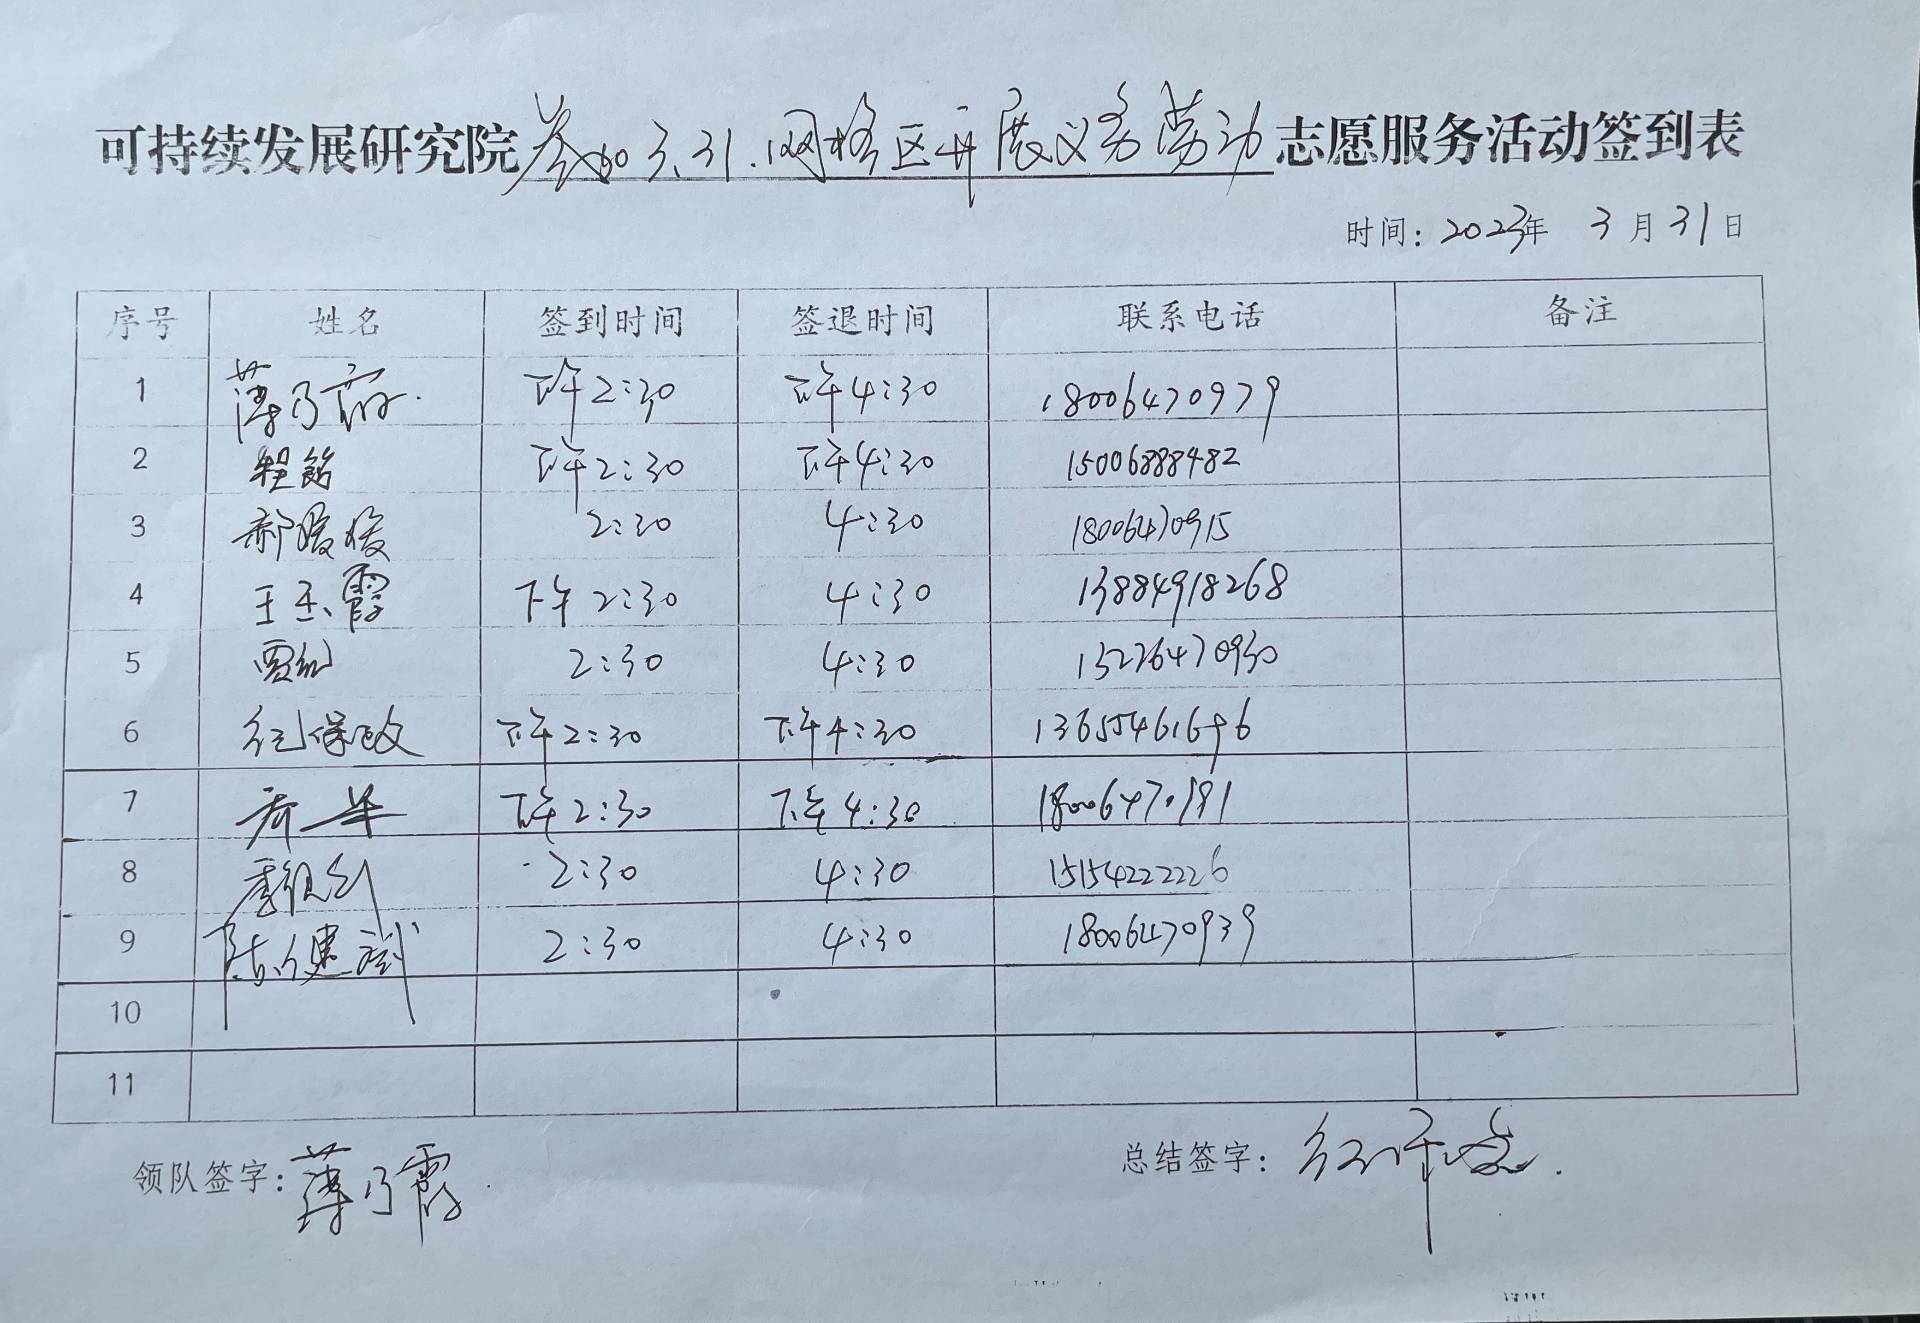 可持续发展研究院参加3.31.网格区开展义务劳动志愿服务活动签到表
时间：2023年 3月31日
序号 姓名 签到时间 签退时间 联系电话 备注
1 薄乃霞 下午2:30 下午4:30 18006470979
2 程铭 下午2:30 下午4:30 15006888482
3 郝媛媛 2:30 4:30 18006470915
4 王玉霞 下午2:30 4:30 13884918268
5 2:30 4:30 13226470930
6 保政 下午2:30 下午4:30
7 乔华 下午2:30 下午4:30
8 2:30 4:30 15154222226
9 陈健斌 2:30 4:30 18006470939
10
11
领队签字：薄乃霞 总结签字：